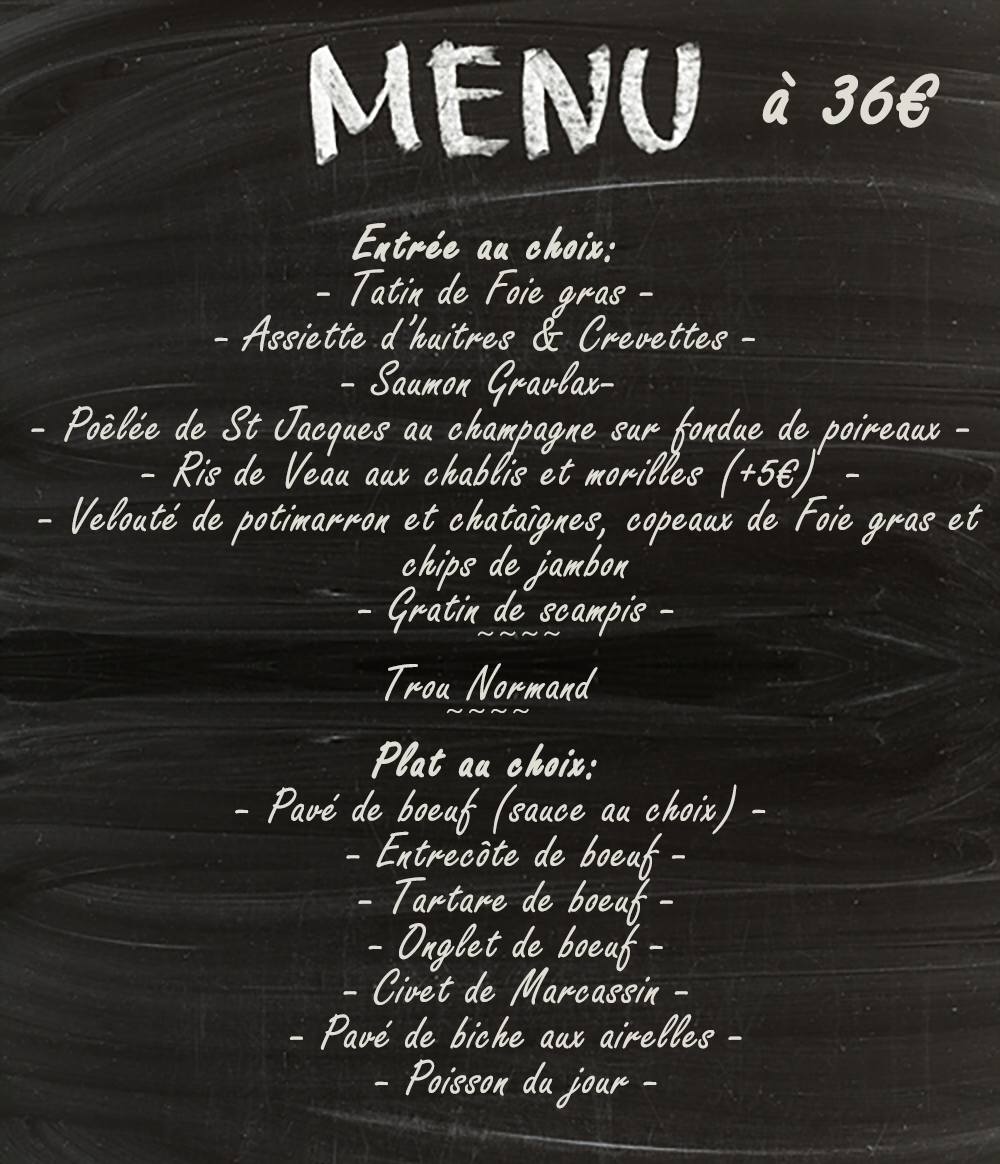 MENU à 36€
Entrée au choix:
- Tatin de Foie gras -
- Assiette d'huitres & Crevettes -
- Saumon Gravlax-
- Poêlée de St Jacques au champagne sur fondue de poireaux -
- Ris de Veau aux chablis et morilles (+5€) -
- Velouté de potimarron et chataîgnes, copeaux de Foie gras et
chips de jambon
- Gratin de scampis -
~~~~
Trou Normand
~~~~
Plat au choix:
- Pavé de boeuf (sauce au choix) -
- Entrecôte de boeuf -
- Tartare de boeuf -
- Onglet de boeuf -
- Civet de Marcassin -
- Pavé de biche aux airelles -
- Poisson du jour -